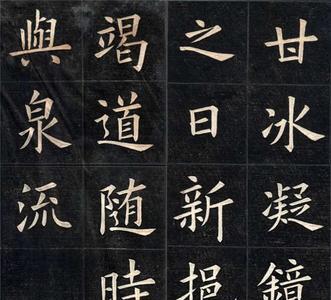 甘冰凝鏡
之日新挹
竭道随時
與泉流